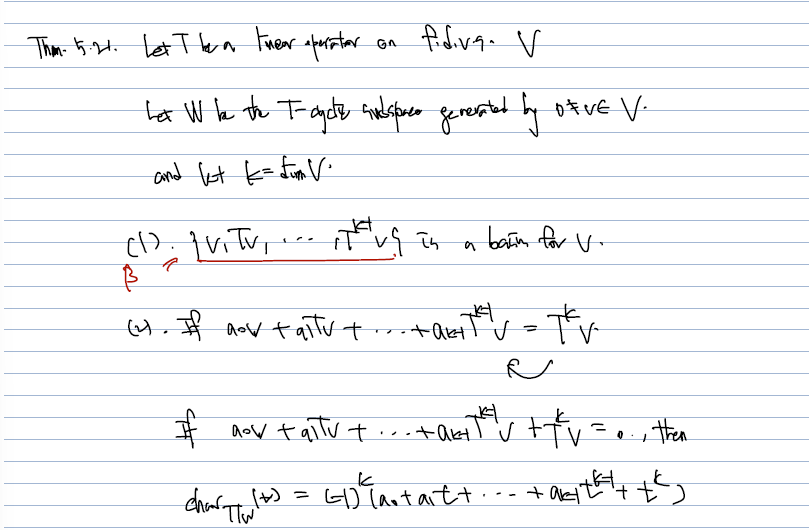 Thm. 5.21. Let T be a linear operator on f.d.v.s. V
Let W be the T-cyclic subspace generated by 0≠v∈V.
and let k = dim V.
(1). {v, Tv, ..., T^{k-1}v} is a basis for V.
β
(2). If a₀v + a₁Tv + ... + a_{k-1}T^{k-1}v = T^k v.
If a₀v + a₁Tv + ... + a_{k-1}T^{k-1}v + T^k v = 0., then
char_{T|W}(t) = (-1)^k (a₀ + a₁t + ... + a_{k-1}t^{k-1} + t^k)